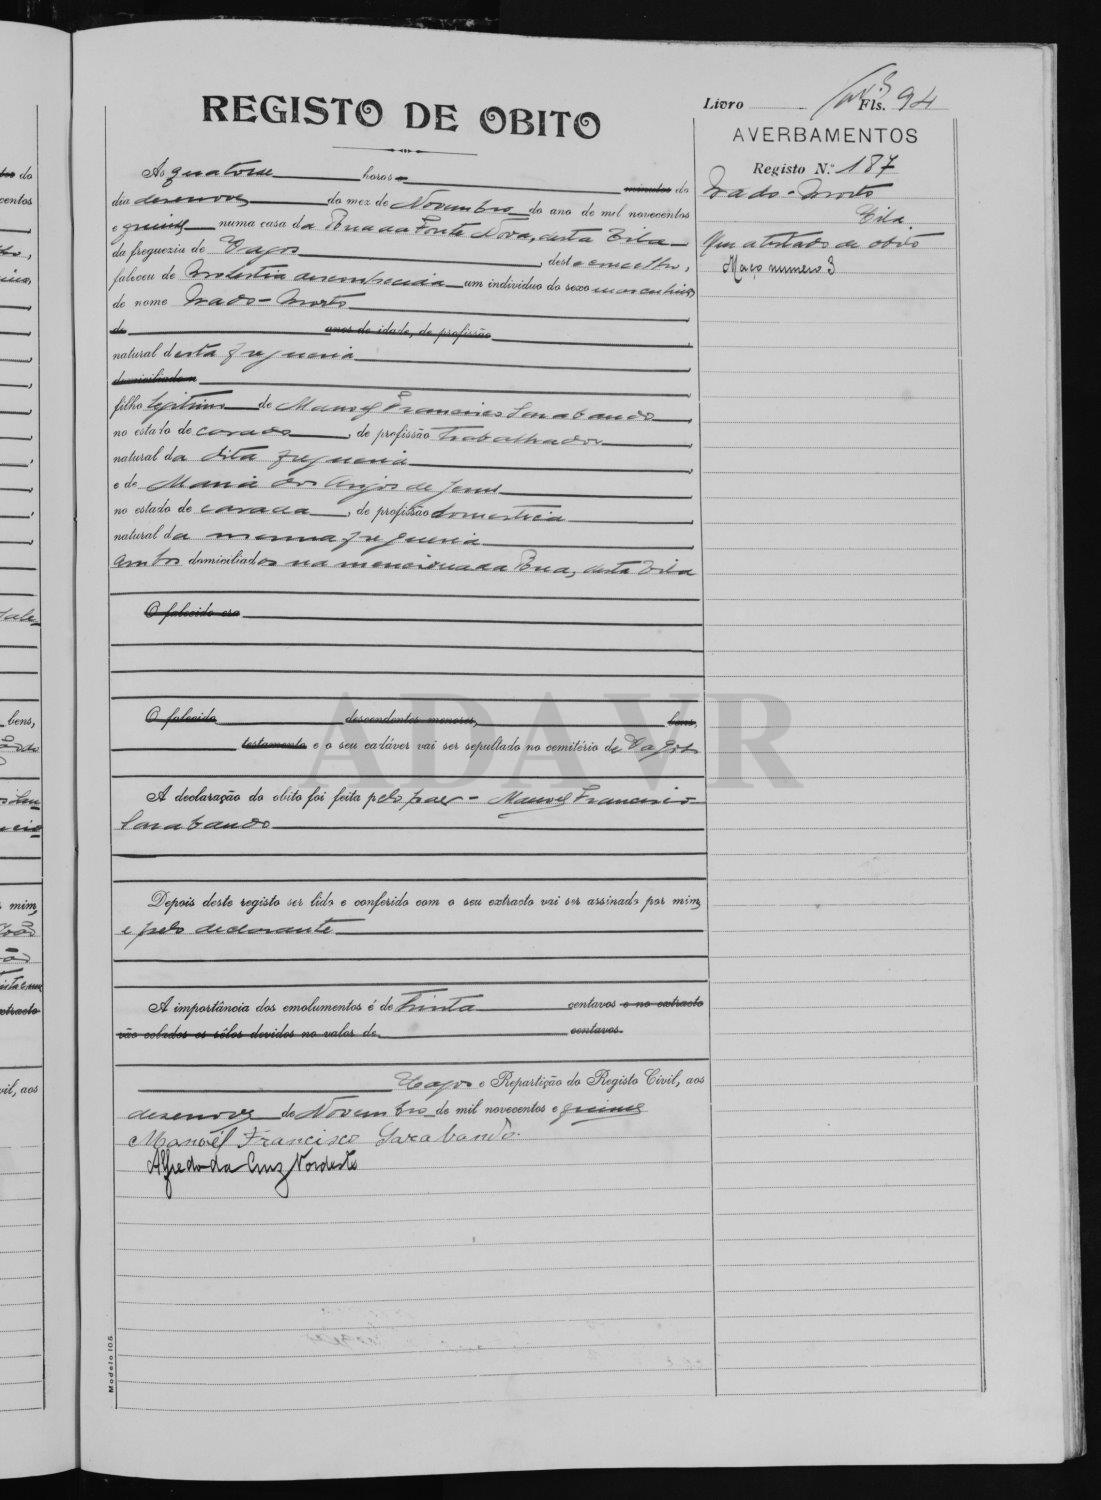 REGISTO DE OBITO
Livro Fls. 94
AVERBAMENTOS
Registo N.º 187
Nado-Morto
Vila
Tem atestado de obito
Maço numero 3
As quatorse horas minutos do
dia desenove do mez de Novembro do ano de mil novecentos
e quinse numa casa da Rua da Fonte Nova, desta Vila
da freguezia de Vagos, deste concelho,
faleceu de Molestia desconhecida um individuo do sexo masculino
de nome Nado-Morto
de anos de idade, de profissão
natural desta freguesia
domiciliado n
filho legitimo de Manoel Francisco Sarabando
no estado de casado, de profissão trabalhador
natural da dita freguesia
e de Maria dos Anjos de Jesus
no estado de casada, de profissão domestica
natural da mesma freguesia
ambos domiciliados na mencionada Rua, desta Vila
O falecido era
O falecido descendentes menores, bens,
testamento e o seu cadáver vai ser sepultado no cemitério de Vagos
A declaração do obito foi feita pelo pae - Manoel Francisco
Sarabando
Depois deste registo ser lido e conferido com o seu extracto vai ser assinado por mim,
e pelo declarante
A importância dos emolumentos é de trinta centavos e no extracto
vão colados os sêlos devidos no valor de centavos.
Vagos e Repartição do Registo Civil, aos
desenove de Novembro de mil novecentos e quinse
Manoél Francisco Sarabando.
Alfredo da Cruz Nordeste
Modelo 105
ADAVR